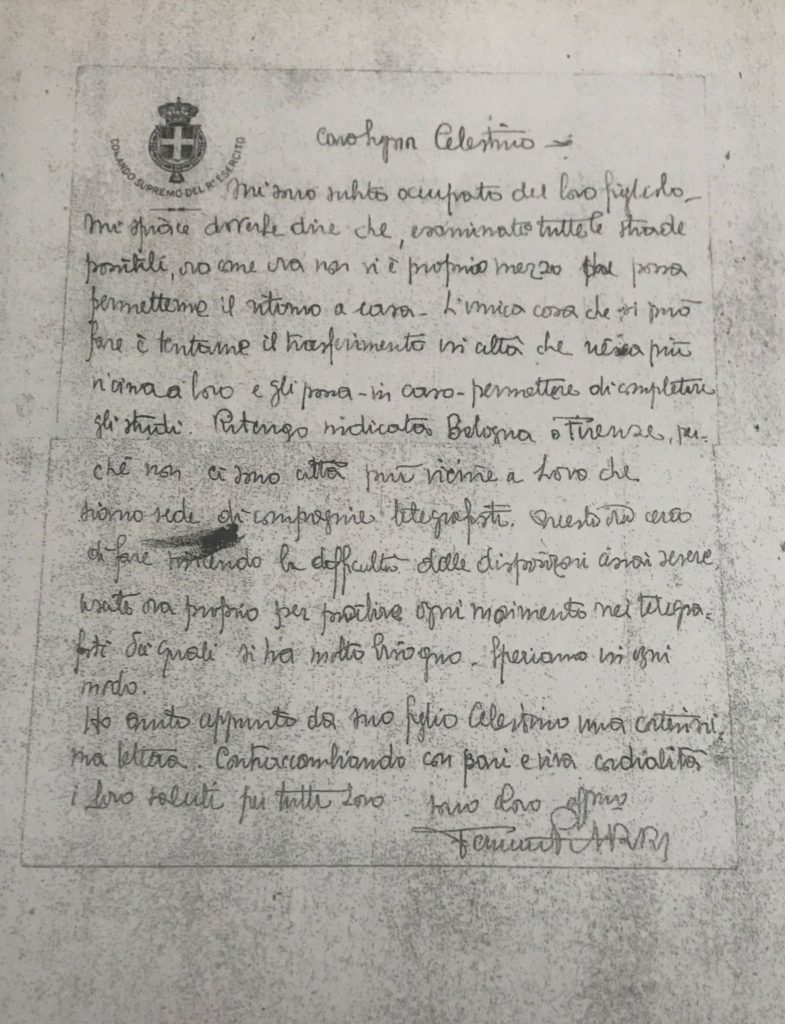 COMANDO SUPREMO DEL R° ESERCITO
Caro Celestino
Mi sono subito occupato del loro figliolo
Mi spiace doverle dire che, esaminato tutte le strade
possibili, ora come ora non vi è proprio mezzo che possa
permetterne il ritorno a casa. L'unica cosa che si può
fare è tentarne il trasferimento in città che più
vicina a loro e gli possa - in caso - permettere di completare
gli studi. Ritengo indicata Bologna o Firenze, per-
ché non ci sono città più vicine a Loro che
siano sede di compagnie telegrafisti. Questo
di fare la difficoltà delle disposizioni assai severe,
ora proprio per ogni movimento nei telegra-
fisti dei quali si ha molto bisogno. Speriamo in ogni
modo.
Ho avuto appunto da suo figlio Celestino una cortesissi-
ma lettera. Contraccambiando con pari e viva cordialità
i loro saluti per tutti loro sono loro